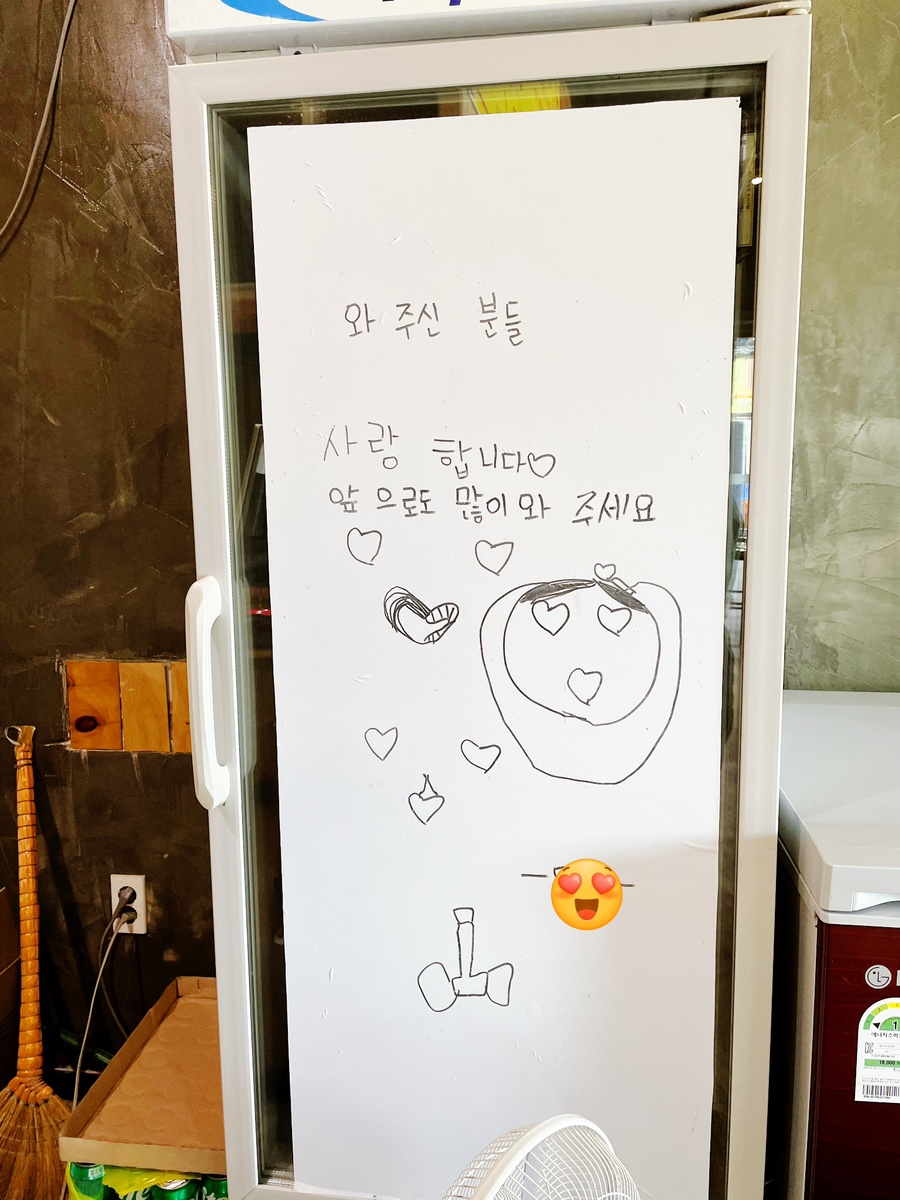 와 주신 분들
사랑 합니다♡
앞 으로도 많이 와 주세요
LG